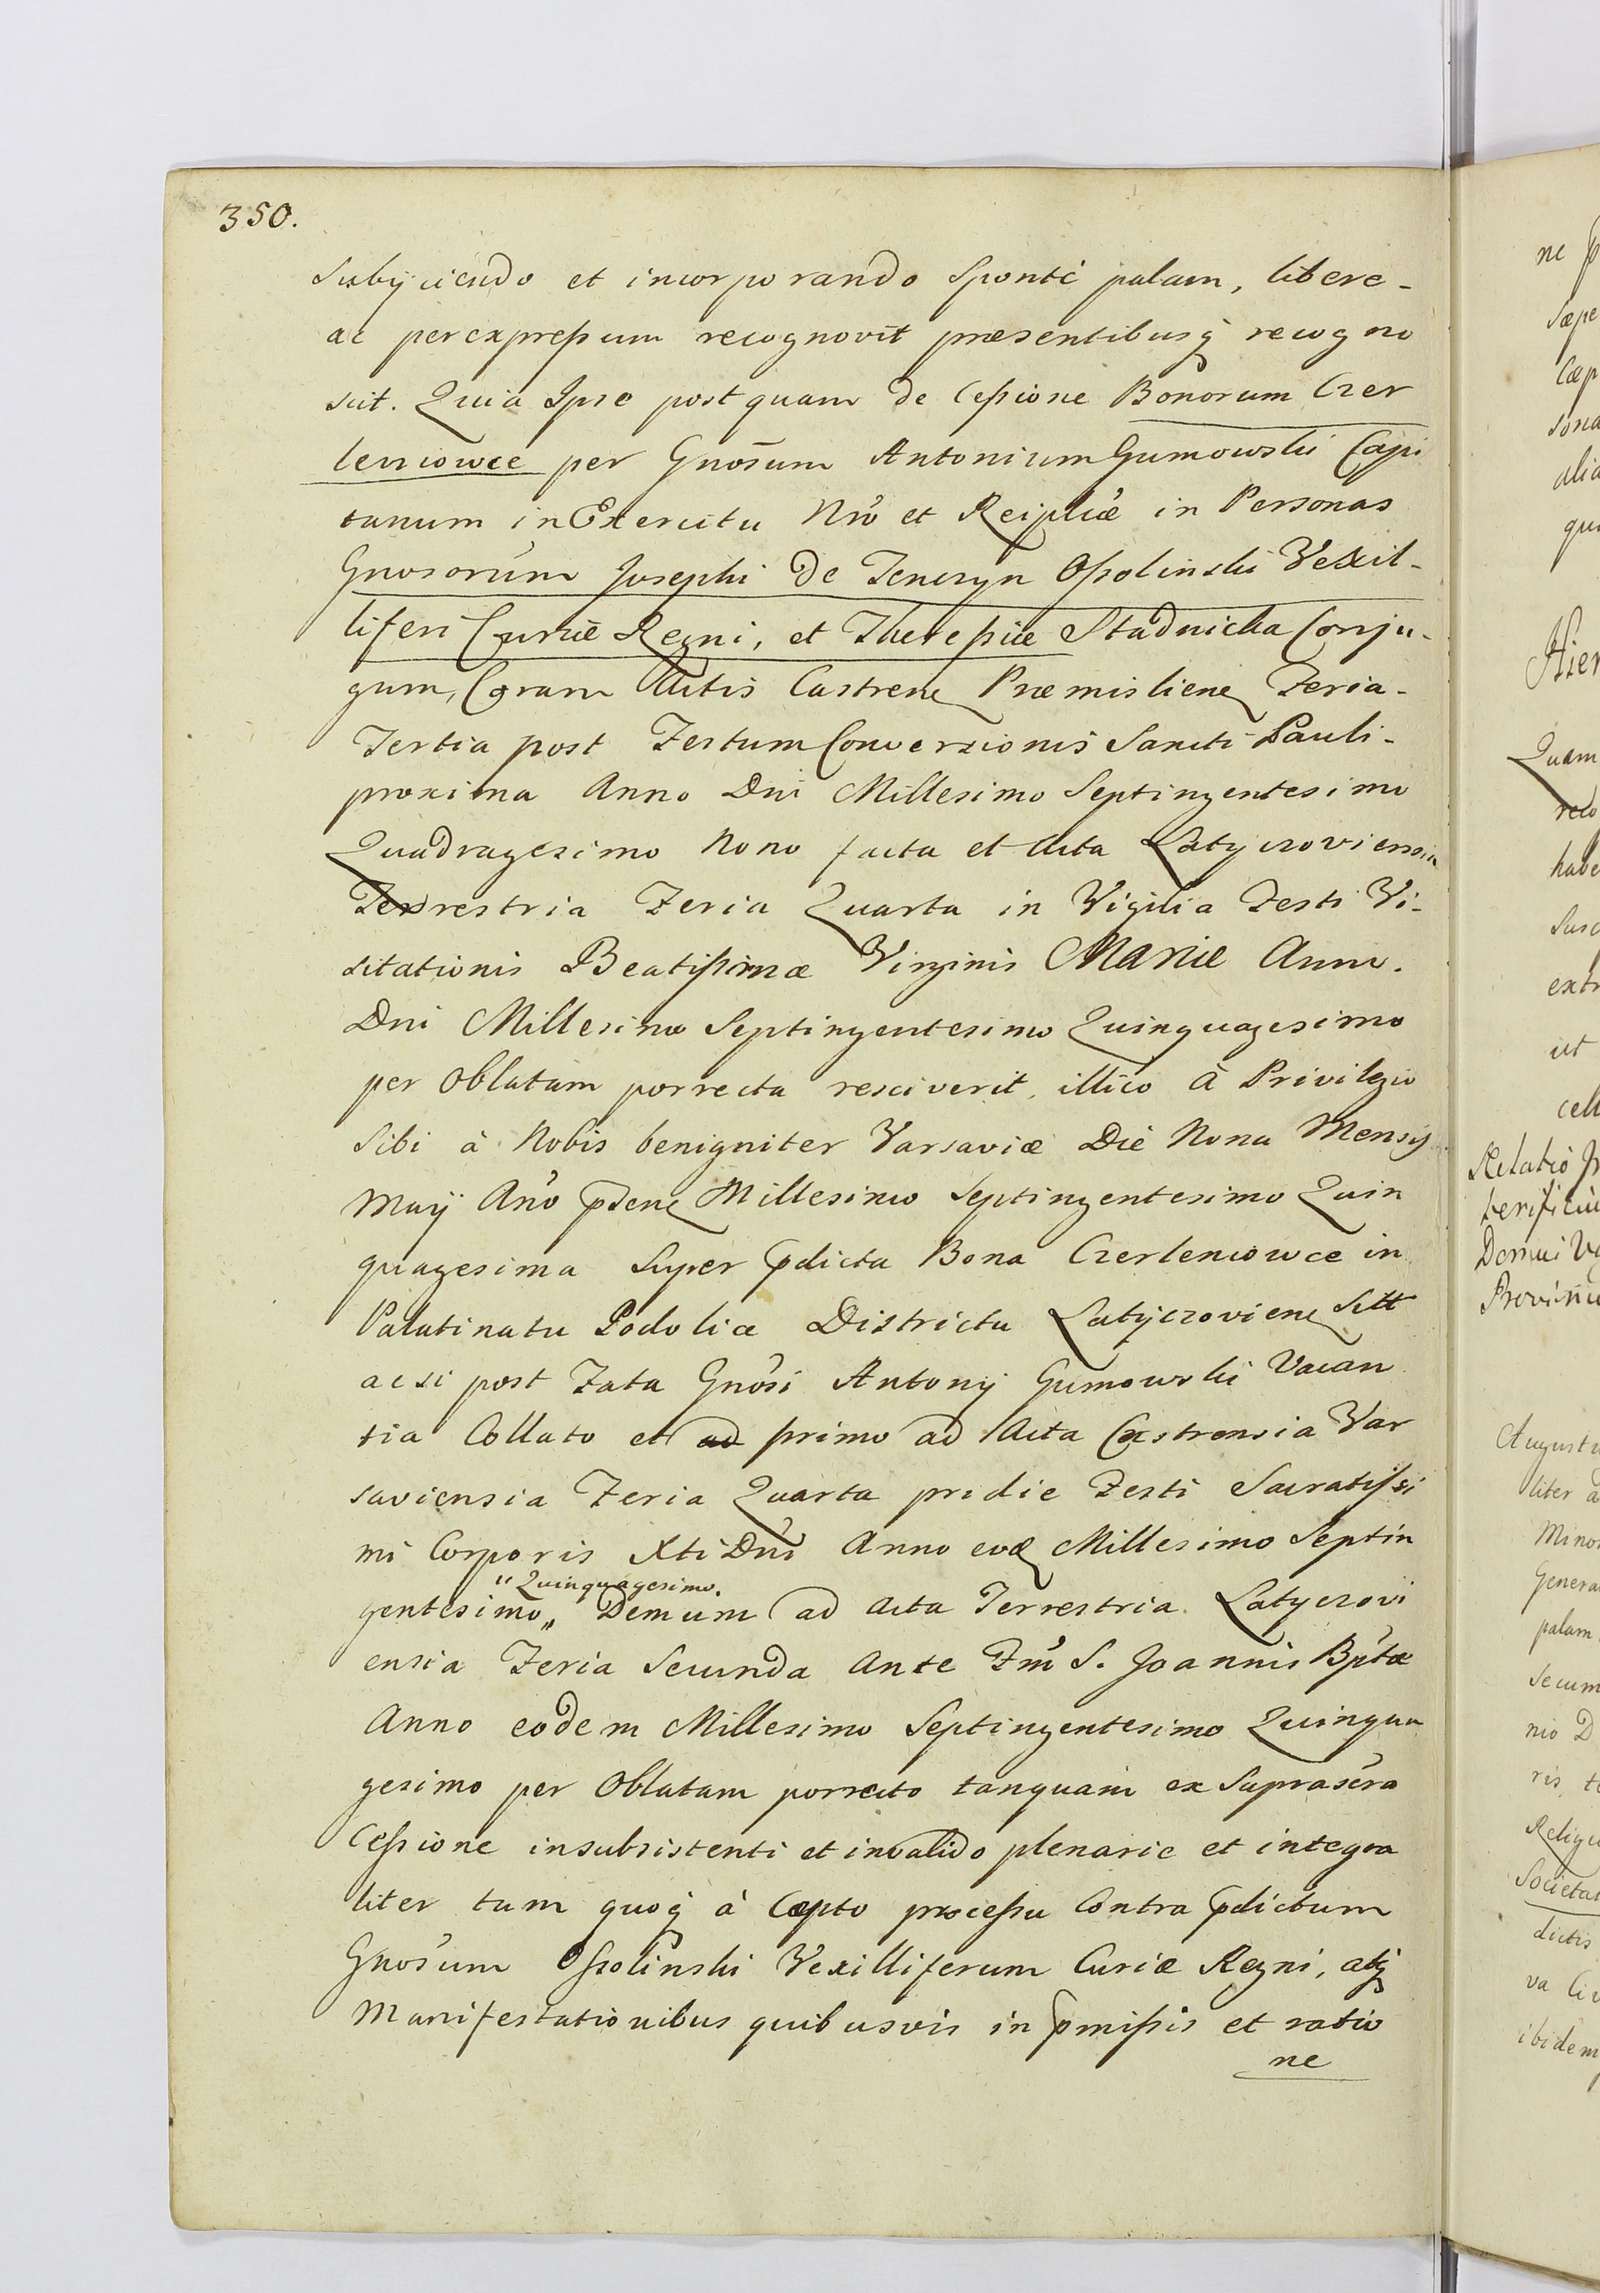 350.
Subijciendo et incorporando Sponte palam, libere -
ac per expressum recognovit præsentibusq recogno
scit. Quia Ipse postquam de Cessione Bonorum Czer
leniowce per Gnosum Antonium Gumowski Capi
tanum in Exercitu Nro et Reiplicæ in Personas
Gnosorum Josephi de Tenczyn Ossolinski Vexil-
liferi Curiæ Regni, et Theressiæ Stadnicka Conju-
gum, Coram Actis Castren Præmislien Feria-
Tertia post Festum Conversionis Sancti Pauli-
proxima Anno Dni Millesimo Septingentesimo
Quadragesimo Nono facta et Acta Latyczoviensia
Terrestria Feria Quarta in Vigilia Festi Vi-
sitationis Beatissimæ Virginis Mariæ Anno.
Dni Millesimo Septingentesimo Quinquagesimo
per Oblatam porrecta resciverit, illico à Privilegio
Sibi à Nobis benigniter Varsaviæ Die Nona Mensis
Maij Ano pden Millesimo Septingentesimo Quin
quagesima Super pdicta Bona Czerleniowce in
Palatinatu Podoliæ Districtu Latyczovien Sitt
ac si post Fata Gnosi Antonij Gumowski Vacan
tia Collato et ad primo ad Acta Castrensia Var
saviensia Feria Quarta pridie Festi Sacratissi
mi Corporis Xti Dni Anno eod Millesimo Septin
"Quinquagesimo.
gentesimo„ Demum ad Acta Terrestria Latyczovi
ensia Feria Secunda Ante Fm S. Joannis Bptæ
Anno eodem Millesimo Septingentesimo Quinqua
gesimo per Oblatam porrecto tanquam ex Suprascra
Cessione insubsistenti et invalido plenarie et integra
liter tum quoq à Cæpto processu Contra pdictum
Gnosum Ossolinski Vexilliferum Curiæ Regni, atq
Manifestationibus quibusvis in pmissis et ratio
ne